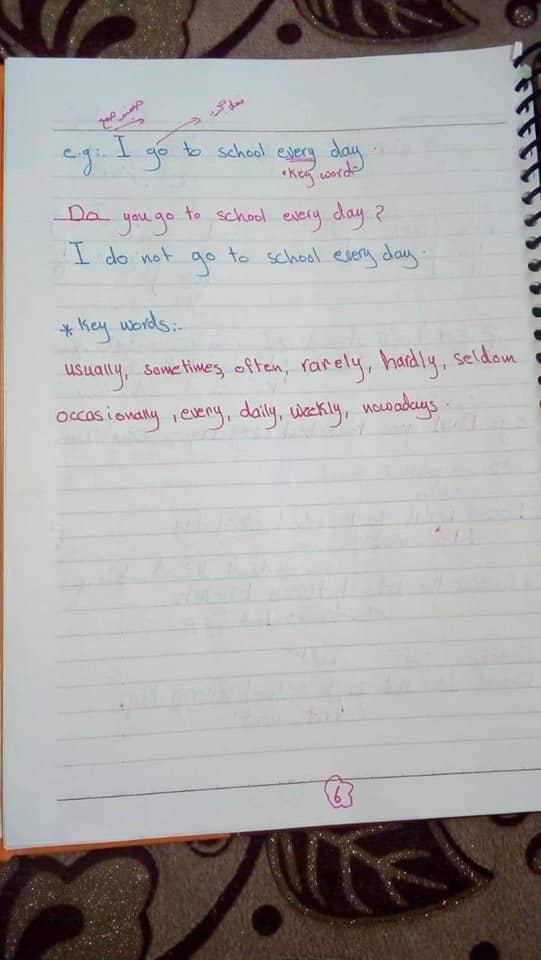 ضمير جمع فعل مجرد
e.g:. I go to school every day.
"Key word"
Do you go to school every day?
I do not go to school every day.
* Key words:-
usually, sometimes, often, rarely, hardly, seldom
occasionally, every, daily, weekly, nowadays.
6